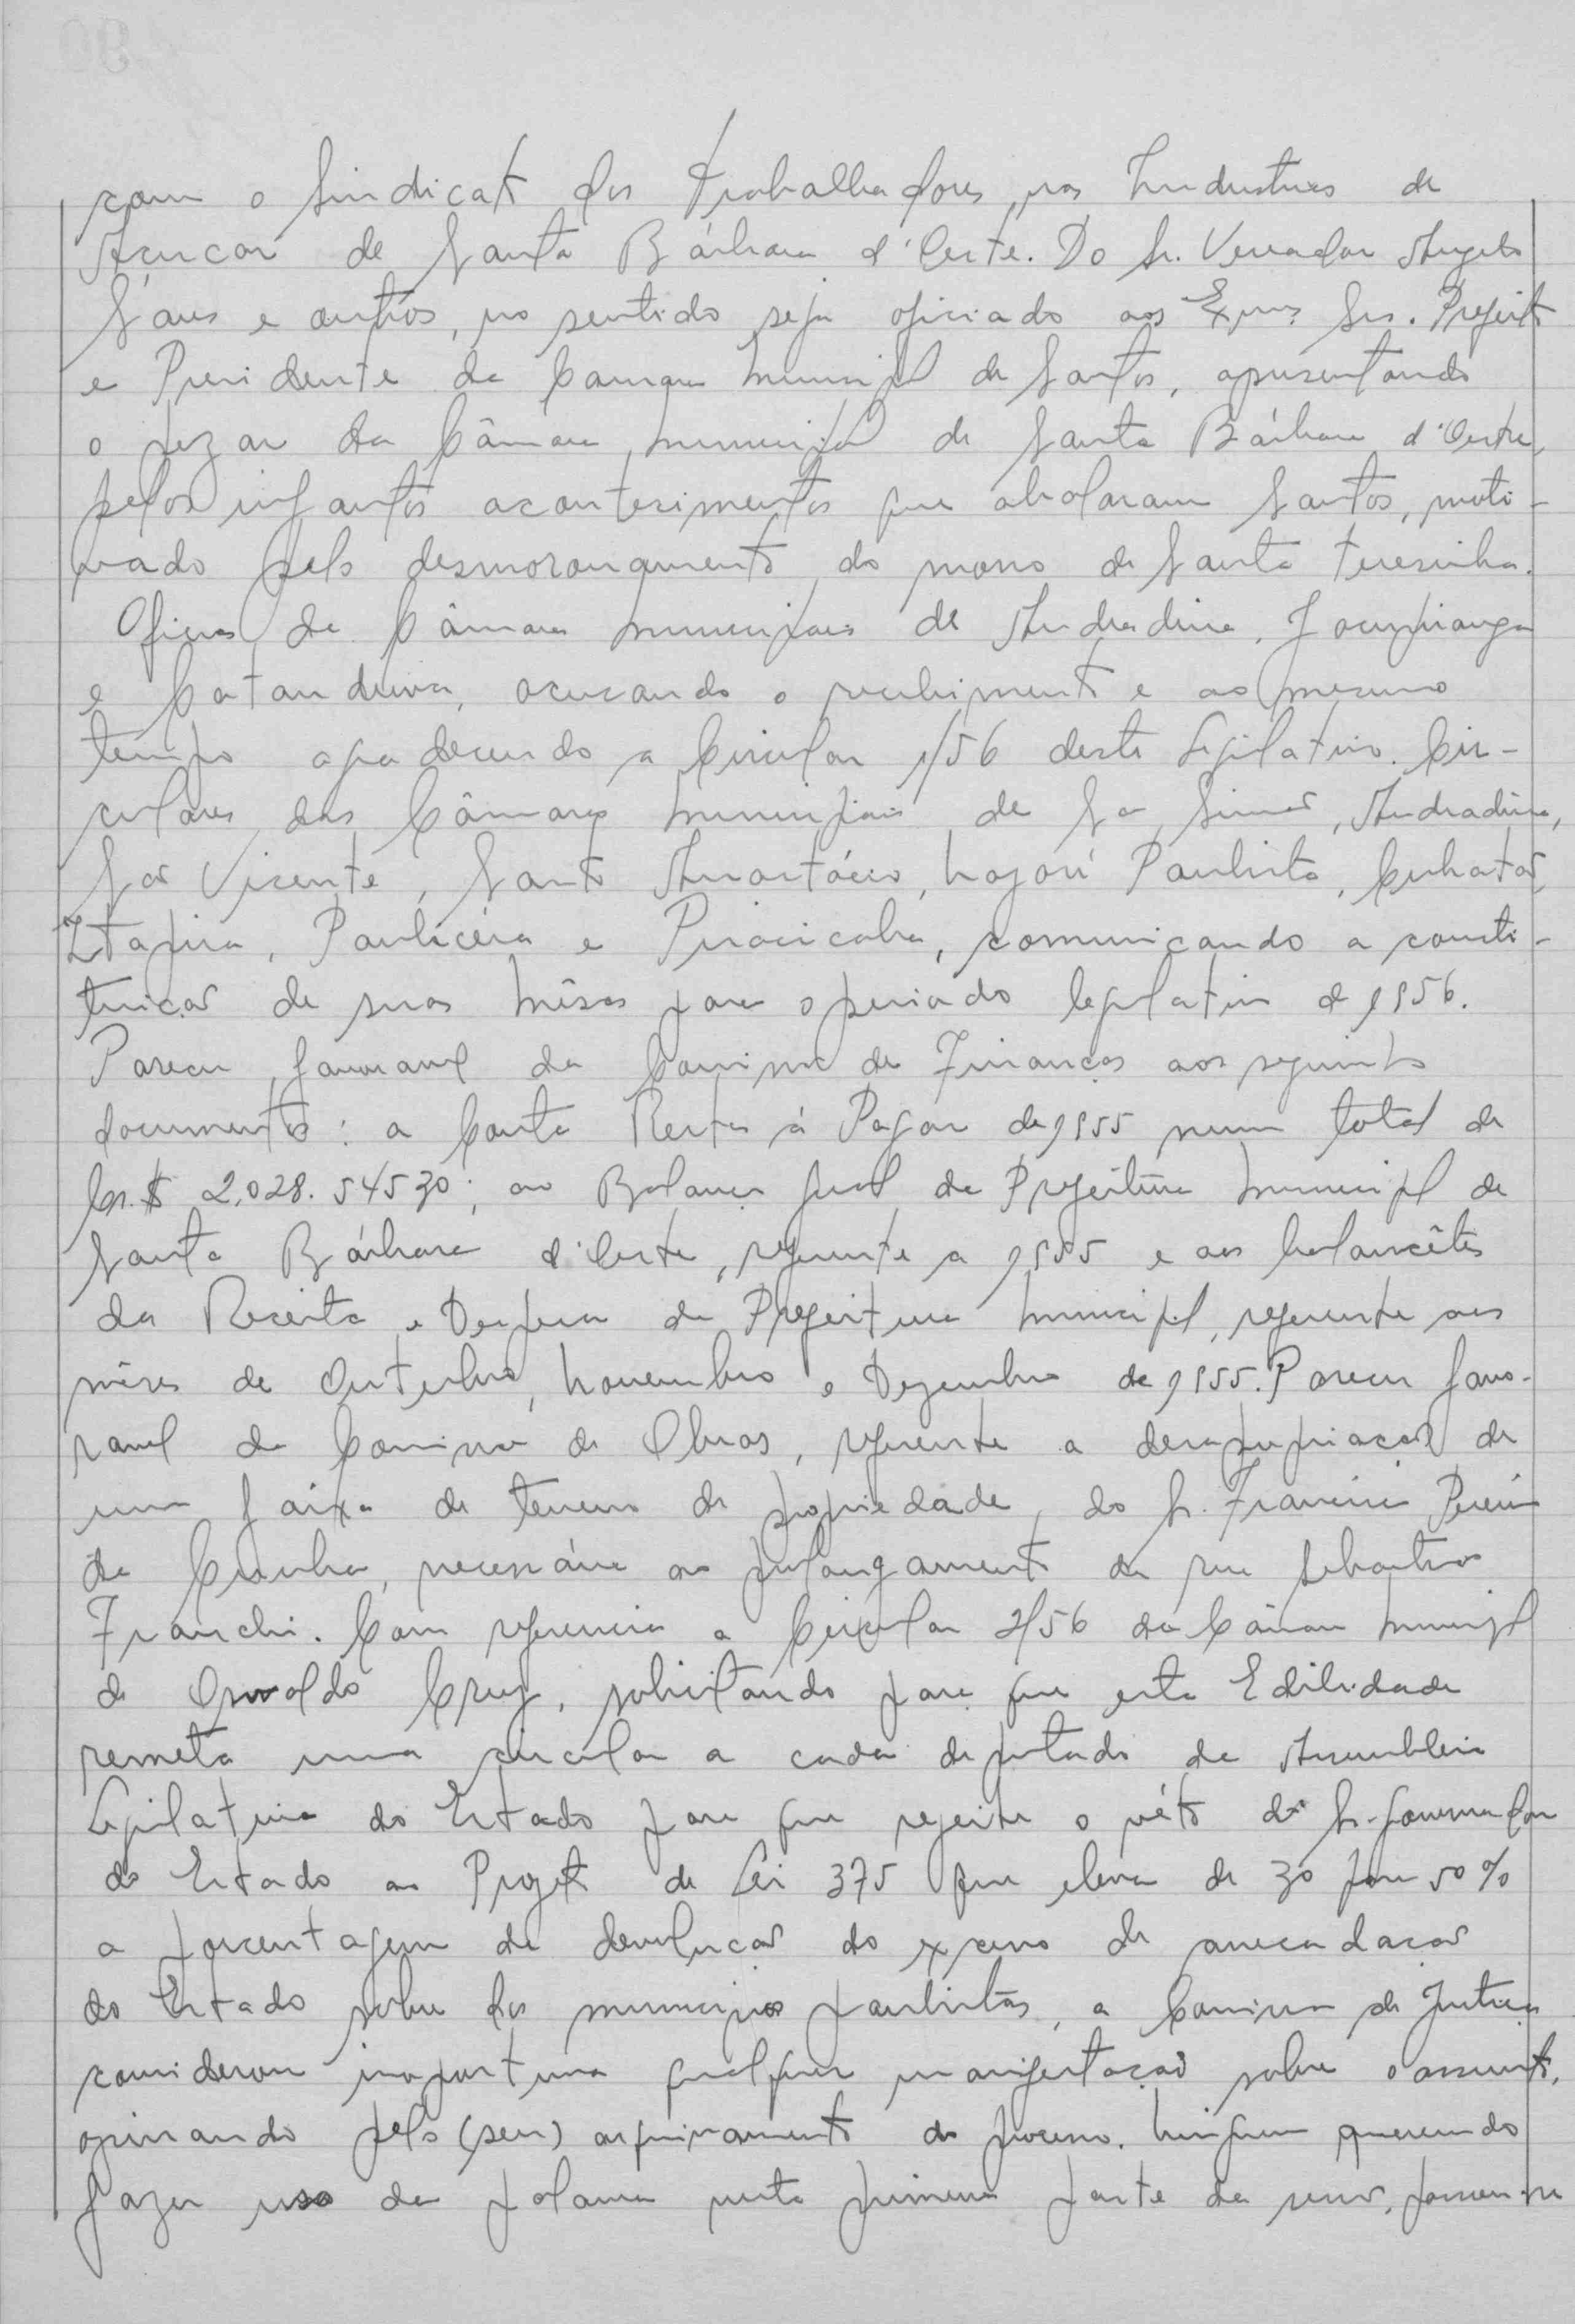 com o Sindicato dos Trabalhadores nas Industrias de
Açucar de Santa Bárbara d'Oeste. Do Sr. Vereador Angelo
Sans e outros, no sentido seja oficiado aos Exmos Srs. Prefeito
e Presidente da Camara Municipal de Santos, apresentando
o pezar da Câmara Municipal de Santa Bárbara d'Oeste,
pelos infaustos acontecimentos que abalaram Santos, moti-
vado pelo desmoronamento do morro de Santa Teresinha.
Oficios de Câmaras Municipais de Andradina, Jacupiranga
e Catanduva, acusando o recebimento e ao mesmo
tempo agradecendo a Circular 1/56 deste Legislativo. Cir-
culares das Câmaras Municipais de Andradina,
São Vicente, Santo Anastácio, Macaraí Paulista, Cubatão,
Itapira, Paulicéia e Piracicaba, comunicando a consti-
tuição de suas mêsas para o periodo legislativo de 1956.
Parecer favoravel da Comissão de Finanças aos seguintes
documentos: a Conta Restos à Pagar de 1955 num total de
Cr.$ 2.028.54530; ao Balanço Geral da Prefeitura Municipal de
Santa Bárbara d'Oeste, referente a 1955 e aos balancêtes
da Receita e Despesa da Prefeitura Municipal, referente aos
mêses de Outubro, Novembro e Dezembro de 1955. Parecer favo-
ravel da Comissão de Obras, referente a desapropriação de
uma faixa de terreno de propriedade do Sr. Francisco Pereira
da Cunha, necessária ao prolongamento da rua Sebastião
Franchi. Com referencia a Circular 2/56 da Câmara Municipal
de Osvaldo Cruz, solicitando para que esta Edilidade
remeta uma circular a cada deputado da Assembleia
Legislativa do Estado para que rejeite o véto do Sr. Governador
do Estado ao Projeto de Lei 375 que eleva de 30 para 50%
a porcentagem de devolução do excesso de arrecadação
do Estado sobre dos municipios paulistas, a Comissão de Justiça
considerou inoportuna qualquer manifestação sobre o assunto,
opinando pelo (seu) arquivamento do processo. Ninguem querendo
fazer uso da palavra nesta primeira parte da sessão, passou-se